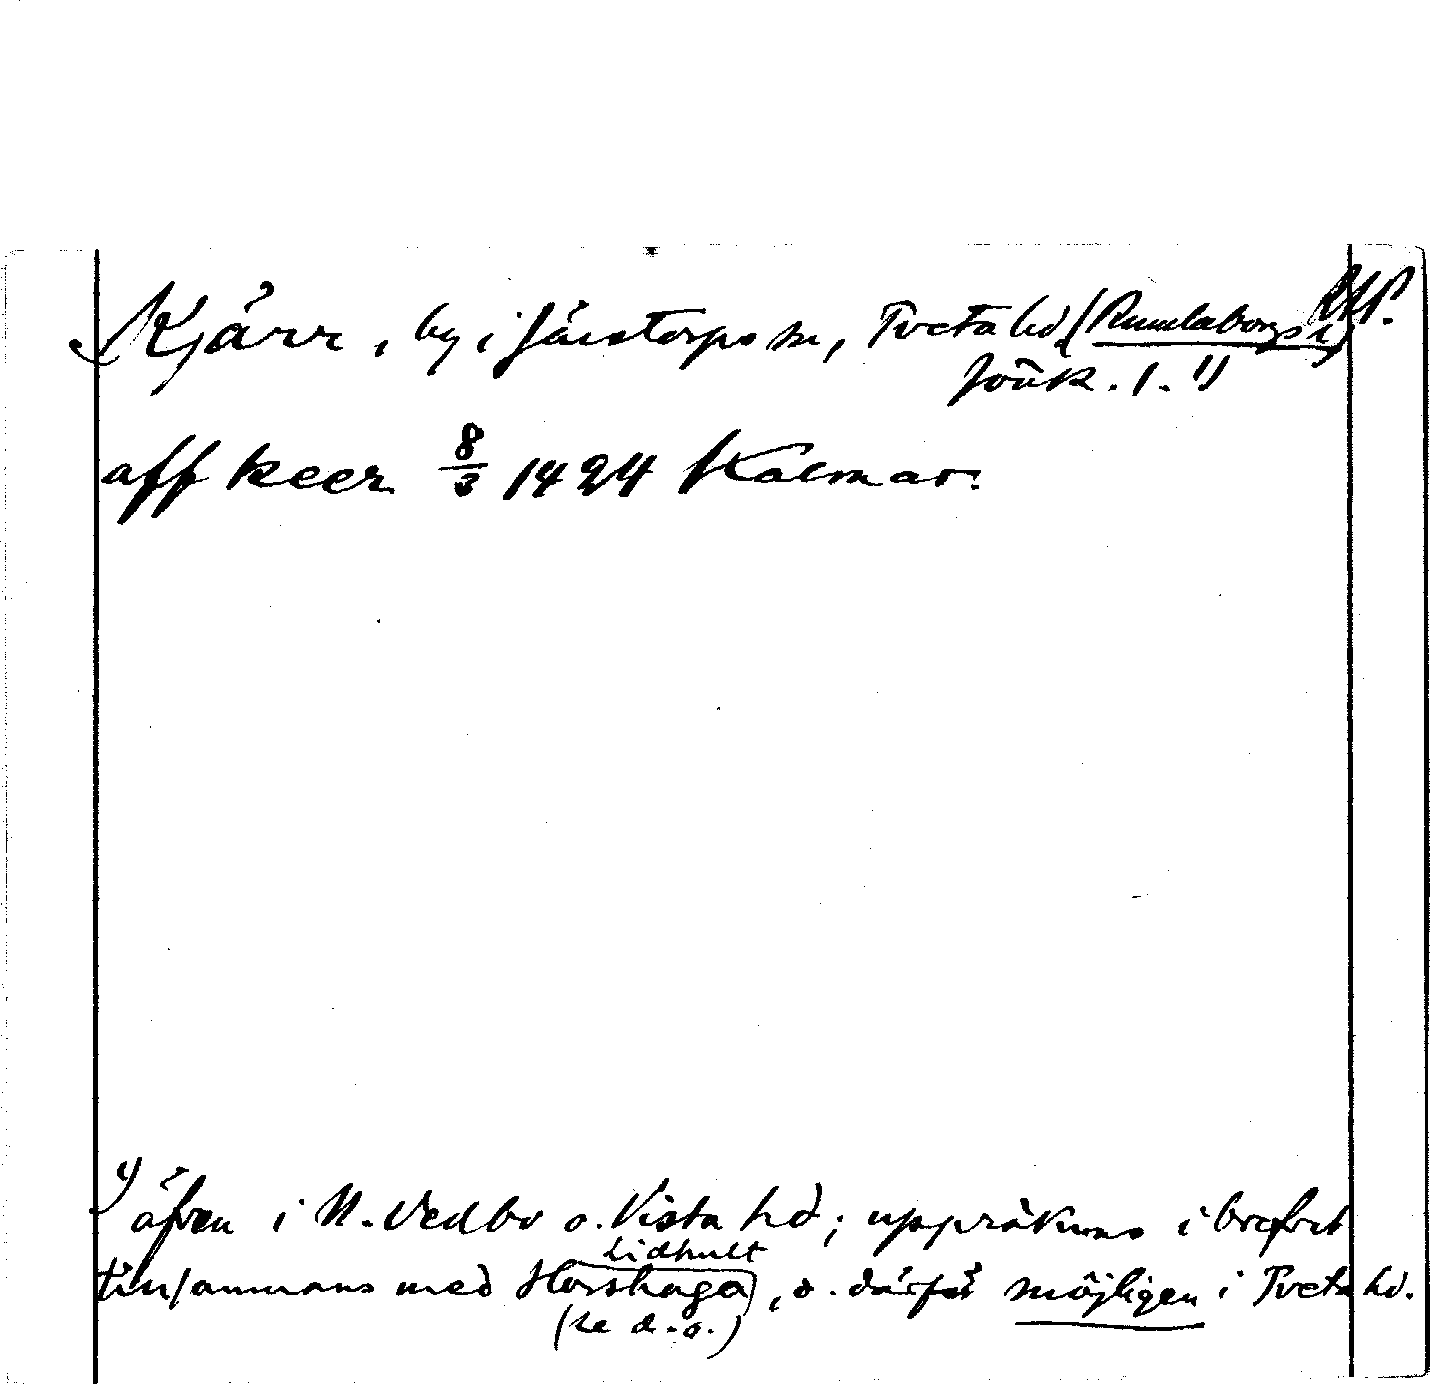 Kjärr, by i Järstorps sn, Tveta hd (Rumlaborgs l.)
Jönk. l. 1)
aff keer 8/3 1424 Kalmar.
1) äfven i N. Vedbo o. Vista hd; uppräknas i brefvet
lidhult
tillsammans med Horshaga, o. därför möjligen i Tveta hd.
(se d. o.)